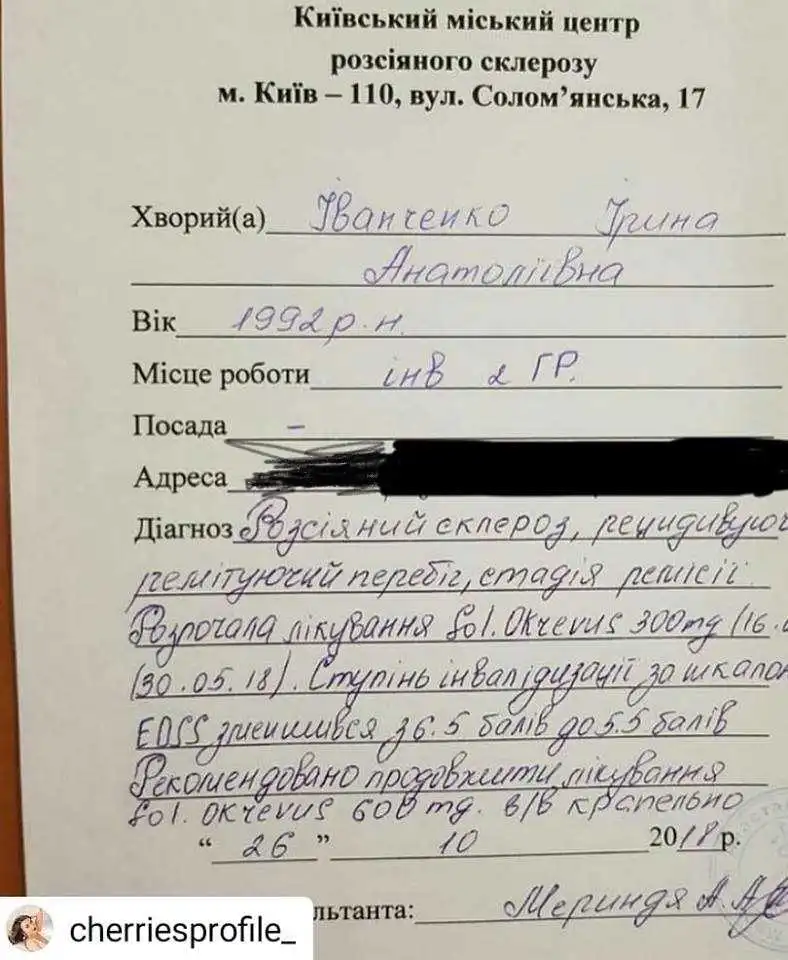 Київський міський центр
розсіяного склерозу
м. Київ – 110, вул. Солом’янська, 17
Хворий(а) Іванченко Ірина
Анатоліївна
Вік 1992 р. н.
Місце роботи інв 2 гр.
Посада –
Адреса
Діагноз Розсіяний склероз, рецидивуюч
ремітуючий перебіг, стадія ремісії
Розпочала лікування Sol. Okrevus 300mg (16.
(30.05.18). Ступінь інвалідизації за шкалою
EDSS зменшився з 6.5 балів до 5.5 балів
Рекомендовано продовжити лікування
Sol. Okrevus 600 mg. в/в крапельно
“ 26 ” 10 2018 р.
льтанта: Мериндя А. А.
cherriesprofile_